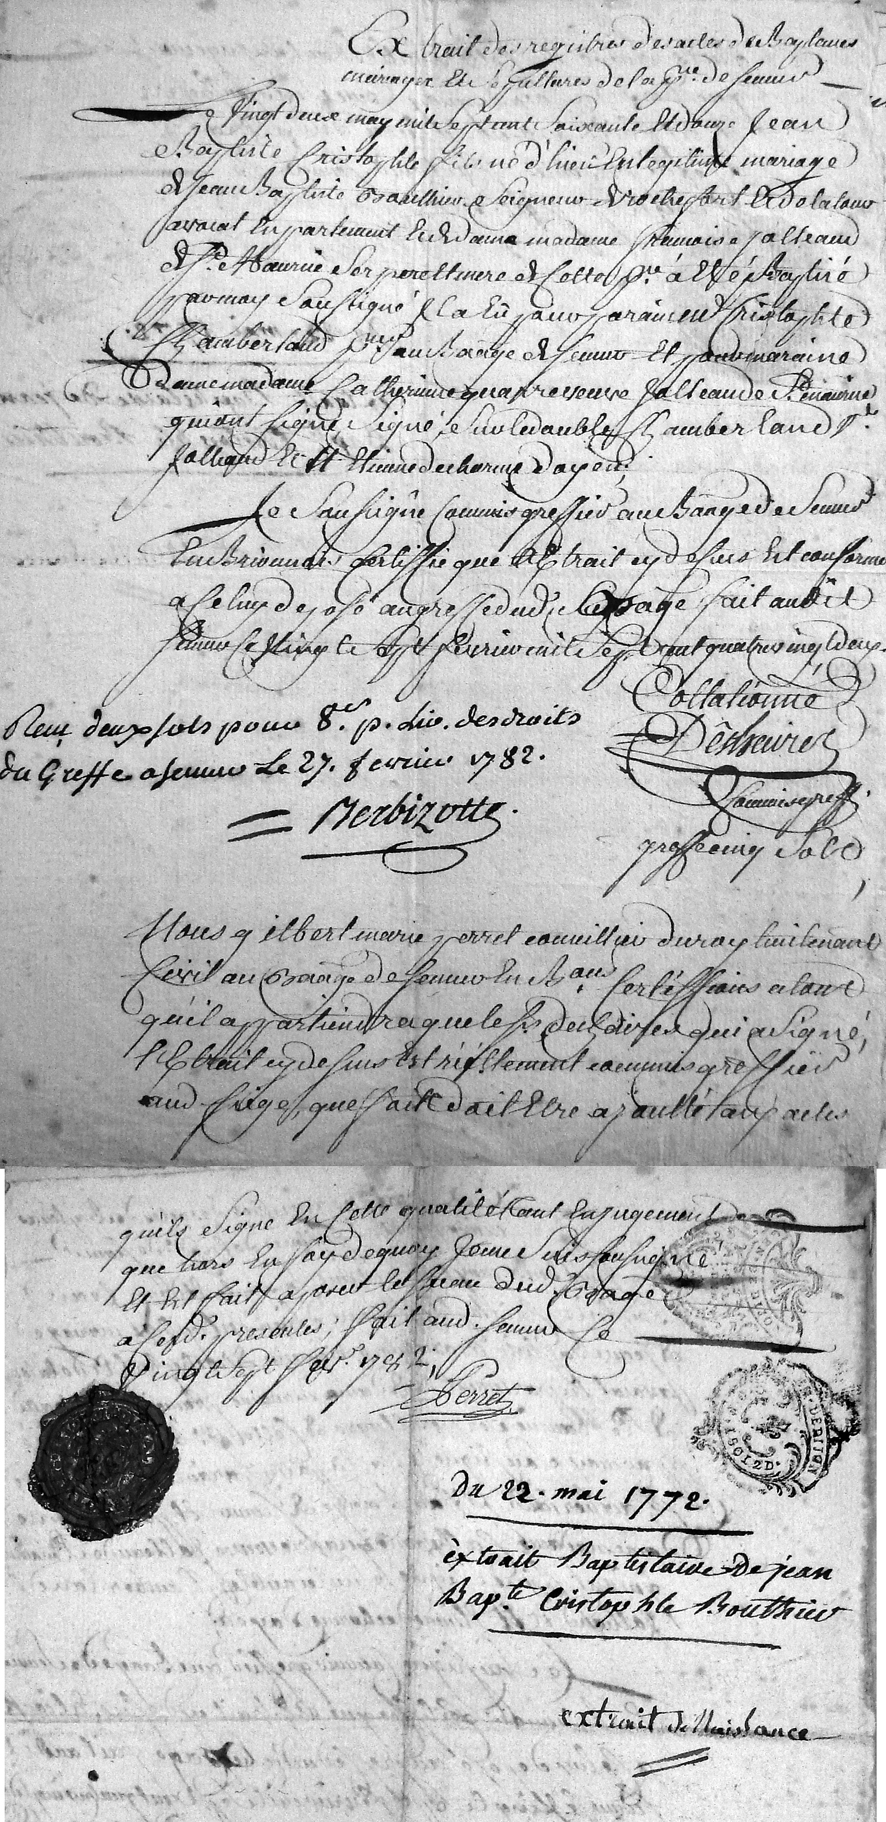 Extrait des registres des actes de Baptemes
mariages Et Sepultures de la p.sse de Semur
Le Vingt deux may mil Sept cent Soixante Et douze Jean
Baptiste Cristophle fils né d'hier En legitime mariage
de Jean Baptiste Bouthier Seigneur de Rochefort & de la tour
avocat En parlement & de dame madame françoise Jolleaud
de St. Maurice Ses pere & mere de Cette p.sse à Eté Baptisé
par moy Soussigné Il a Eü pour parain Cristophle
Chamberland au Baage de Semur Et pour maraine
dame madame Catherine Jolleaud de St. maurice
qui ont Signé, Signé Sur le double, Chamberland
Jolleaud Et Etienne decharme doyen,
Je Soussigné Commis greffier au Baage de Semur
En Brionnais Certiffie que l'Extrait cy dessus Est conforme
a Celuy deposé au greffe dudt. Baage fait audit
Semur Ce Vingt Sept fevrier mil Sept cent quatre vingt deux.
Collationné
Reçu deux sols pour 8.s p. Liv. des droits
du Greffe a Semur Le 27. fevrier 1782.
Commis greff.
Berbizotte.
pr. Cinq Sols
Nous gilbert marie perret conseiller du roy lieutenant
Civil au Baage de Semur En B.ais Certiffions a tous
qu'il appartiendra que le Sr. qui a Signé
l'Extrait cy dessus Est réellement commis greffier
aud. Siege, que foit doit Etre ajoutté aux actes
qu'il Signe En Cette qualité tant En jugement
que hors En foy de quoy Nous Soussigné
Et Est fait aposer le Sceau dud. Baage
a Cesd. presentes, fait aud. Semur Ce
Vingt Sept fev.r 1782,
Perret
Du 22. mai 1772.
extrait Baptistaire De jean
Bap.te Cristophle Bouthier
extrait de Naissance